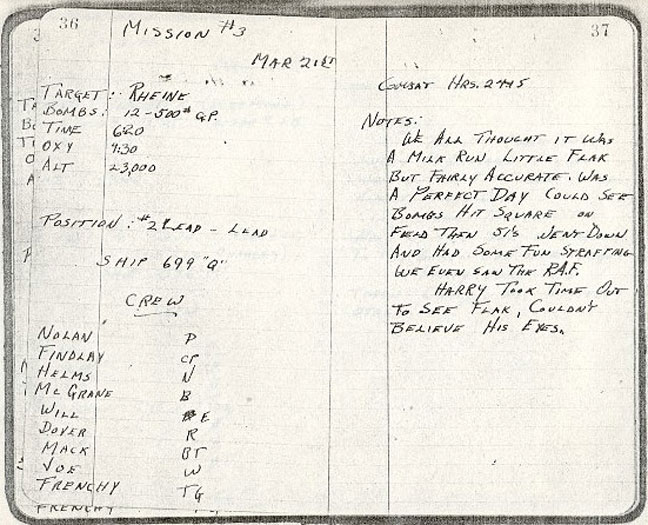 36
Mission #3
Mar 21st
Target: Rheine
Bombs: 12-500# G.P.
Time 6:20
Oxy 4:30
Alt 23,000
Position: #2 Lead - Lead
Ship 699 "Q"
Crew
Nolan P
Findlay CP
Helms N
McGrane B
Will E
Dover R
Mack BT
Joe W
Frenchy TG
Frenchy TG
37
Combat Hrs. 24:45
Notes:
We All Thought it Was
A Milk Run Little Flak
But Fairly Accurate. Was
A Perfect Day Could See
Bombs Hit Square on
Field Then 51's Went Down
And Had Some Fun Straffing
We Even Saw The R.A.F.
Harry Took Time Out
To See Flak, Couldn't
Believe His Eyes.